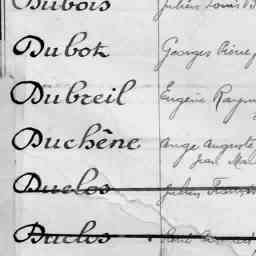 Dubois Julien Louis
Dubok Georges Pierre
Dubreil Eugène Raym
Duchêne Ange Auguste
Jean Ma
Duclos Julien Franç
Duclos René